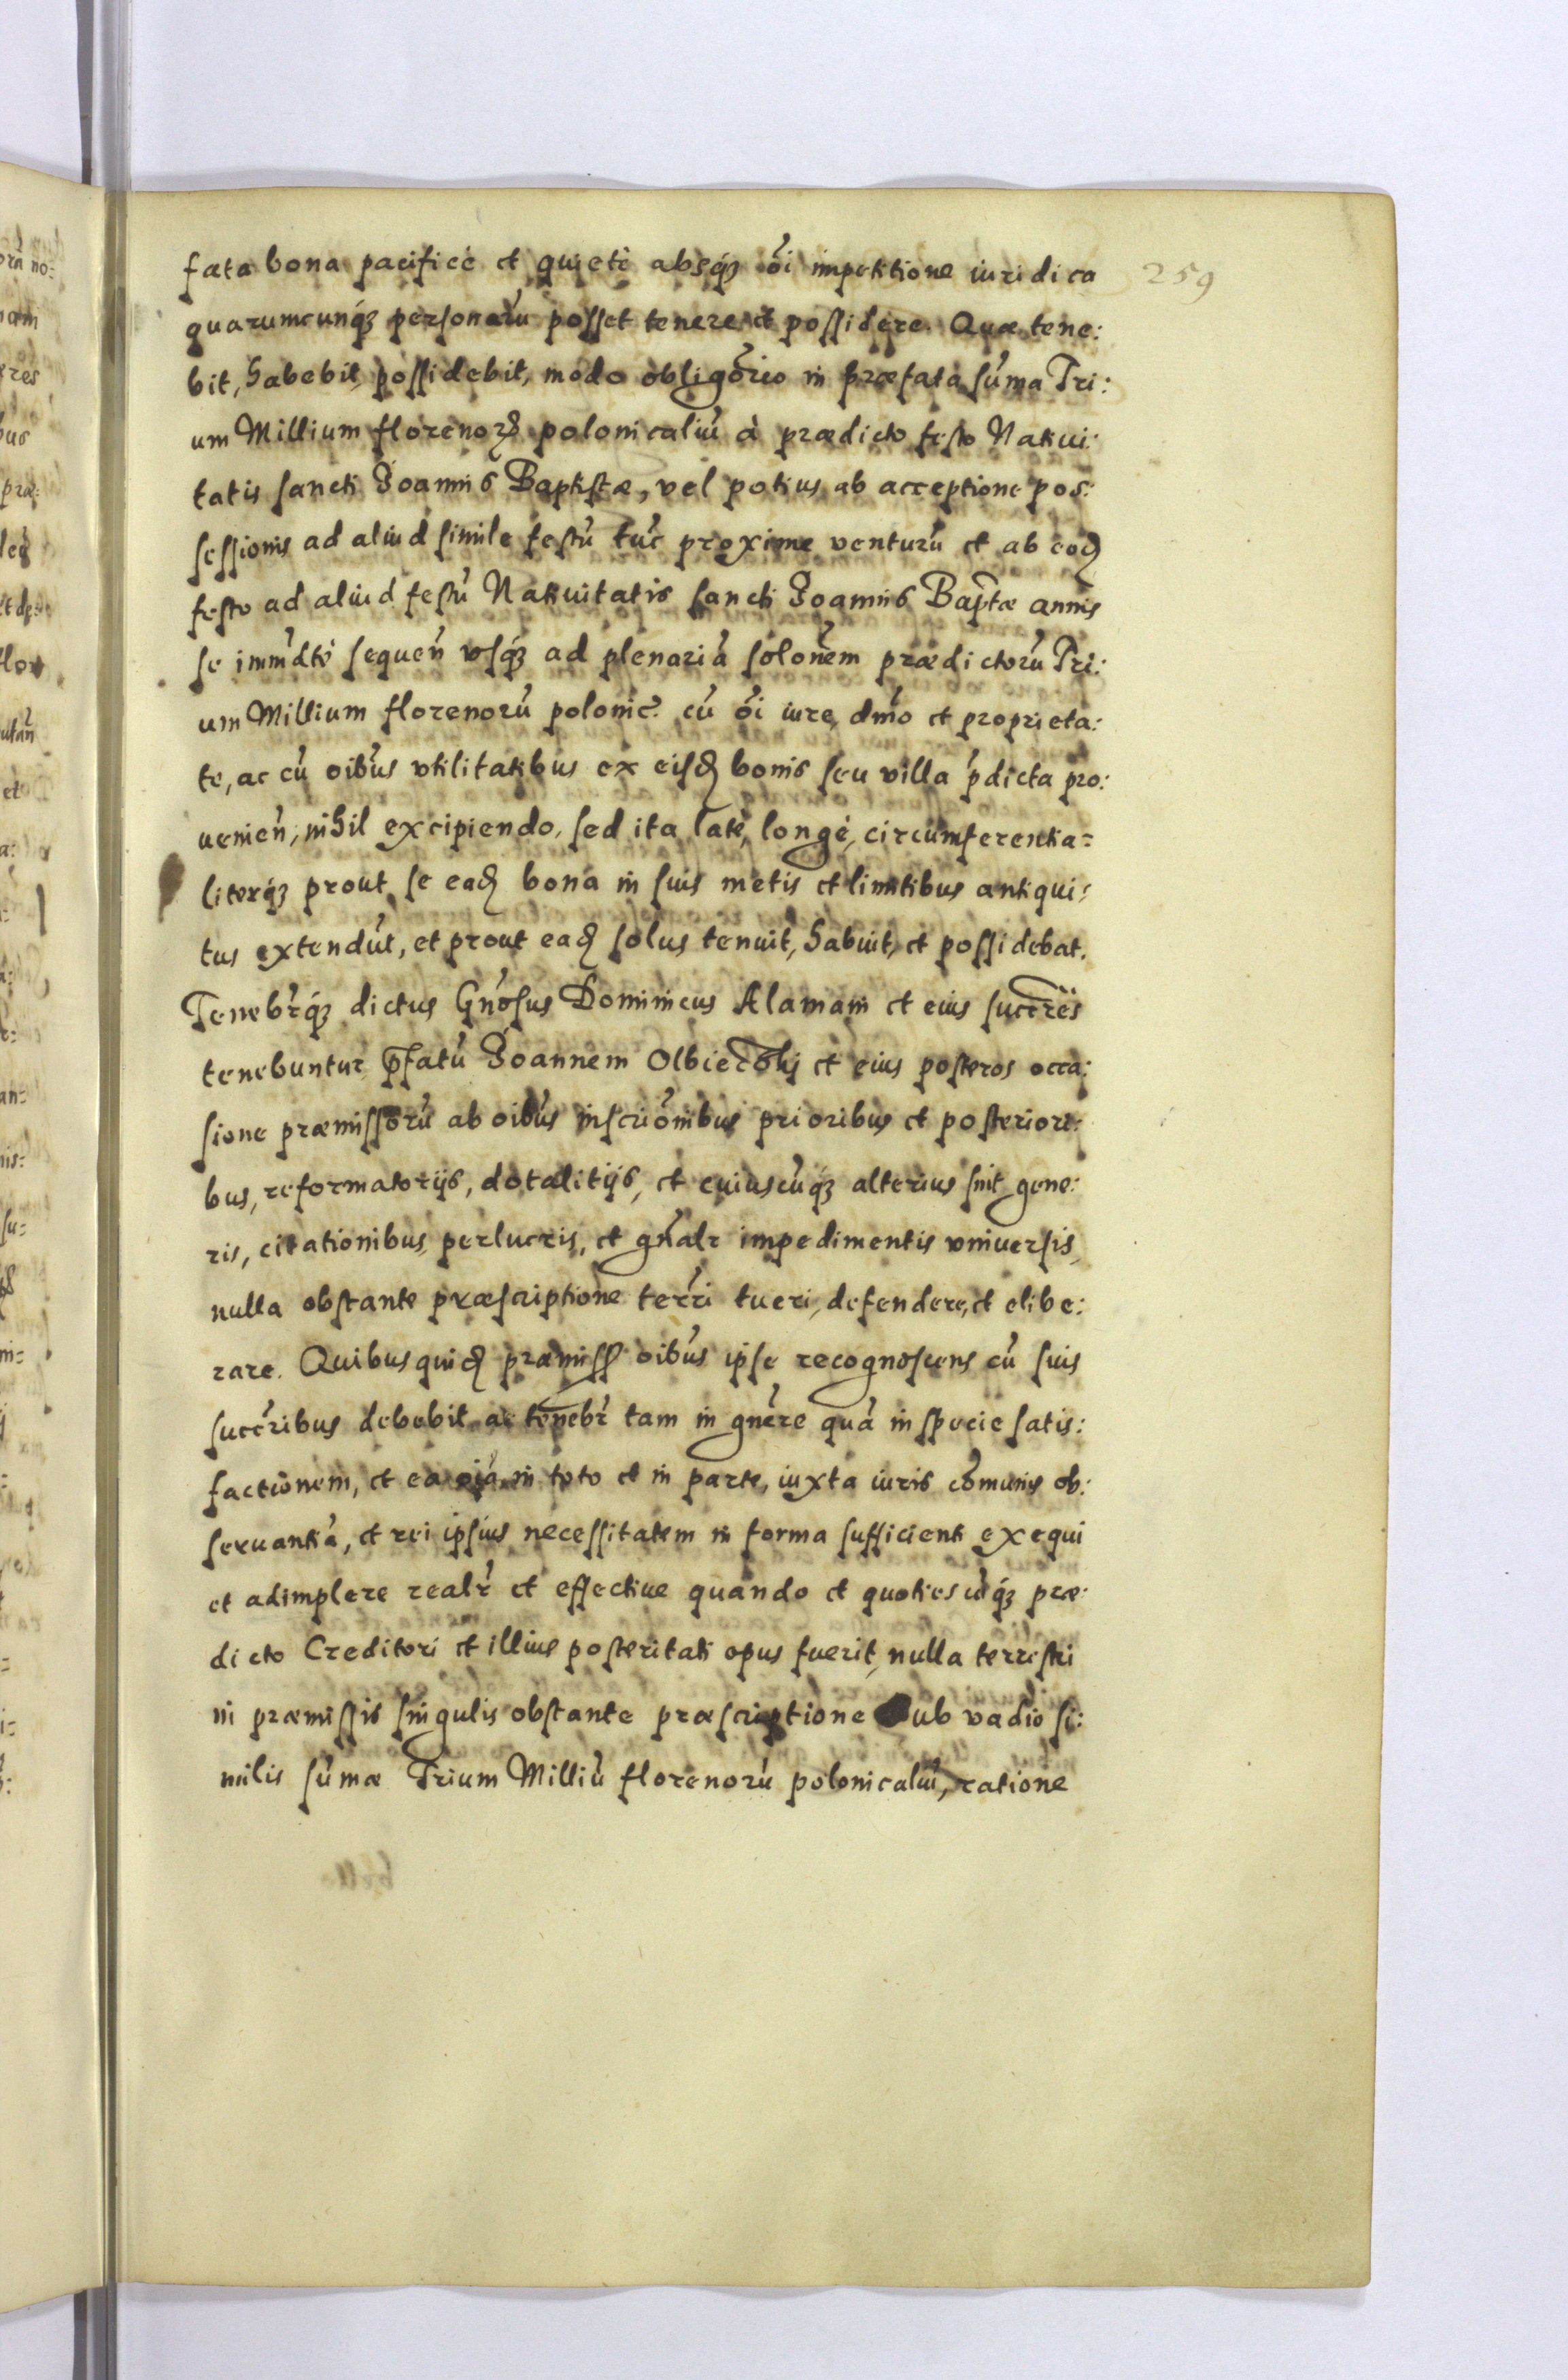 fata bona pacificè et quietè absq́ȝ oı̃ impetitione iuridica 259
quarumcunq́ȝ personarũ posset tenere et possidere. Quæ tene:
bit, habebit, possidebit, modo obligõrio in præfata sũma Tri:
um Millium florenorꝝ polonicaliũ à prædicto festo Natiui:
tatis sancti Joannis Baptistæ, vel potius ab acceptione pos:
sessionis ad aliud simile festũ tũc proxime venturũ et ab eod̃
festo ad aliud festũ Natiuitatis sancti Joannis Bapt̃æ annis
se imm̃dtè sequeñ vsq́ȝ ad plenariã solon̄em prædictorũ Tri:
um Millium florenorũ polonic̃. cũ oı̃ iure, dm̃o et proprieta:
te, ac cũ oibũs vtilitatibus ex eisd̃ bonis seu villa p̃dicta pro:
uenieñ, nihil excipiendo, sed ita latè, longè, circumferentia=
literq́ȝ prout se ead̃ bona in suis metis et limitibus antiqui:
tus extendũt, et prout ead̃ solus tenuit, habuit, et possidebat.
Tenebr̃q́ȝ dictus Gñosus Dominicus Alamani et eius succr̃es
tenebuntur p̃fatũ Joannem Olbiec̃ohj et eius posteros occa:
sione præmissorũ ab oibũs inscriõnibus prioribus et posteriori:
bus, reformatorijs, dotalitijs, et cuiuscũq́ȝ alterius sint gene:
ris, citationibus, perlucris, et gñalr impedimentis vniuersis,
nulla obstante præscriptione terr̃i tueri, defendere, et elibe:
rare. Quibus quid̃ præmiss̃ oibũs ipse recognoscens cũ suis
succr̃ibus debebit ac tenebr̃ tam in gñere quã in specie satis:
factionem, et ea oı̃a in toto et in parte, iuxta iuris cõmunis ob:
seruantiã, et rei ipsius necessitatem in forma sufficienti exequi
et adimplere realr̃ et effectiue quando et quotiescũq́ȝ præ:
dicto Creditori et illius posteritati opus fuerit, nulla terrestri
in præmissis singulis obstante præscriptione Sub vadio si:
milis sũmæ Trium Milliũ florenorũ polonicaliũ, ratione